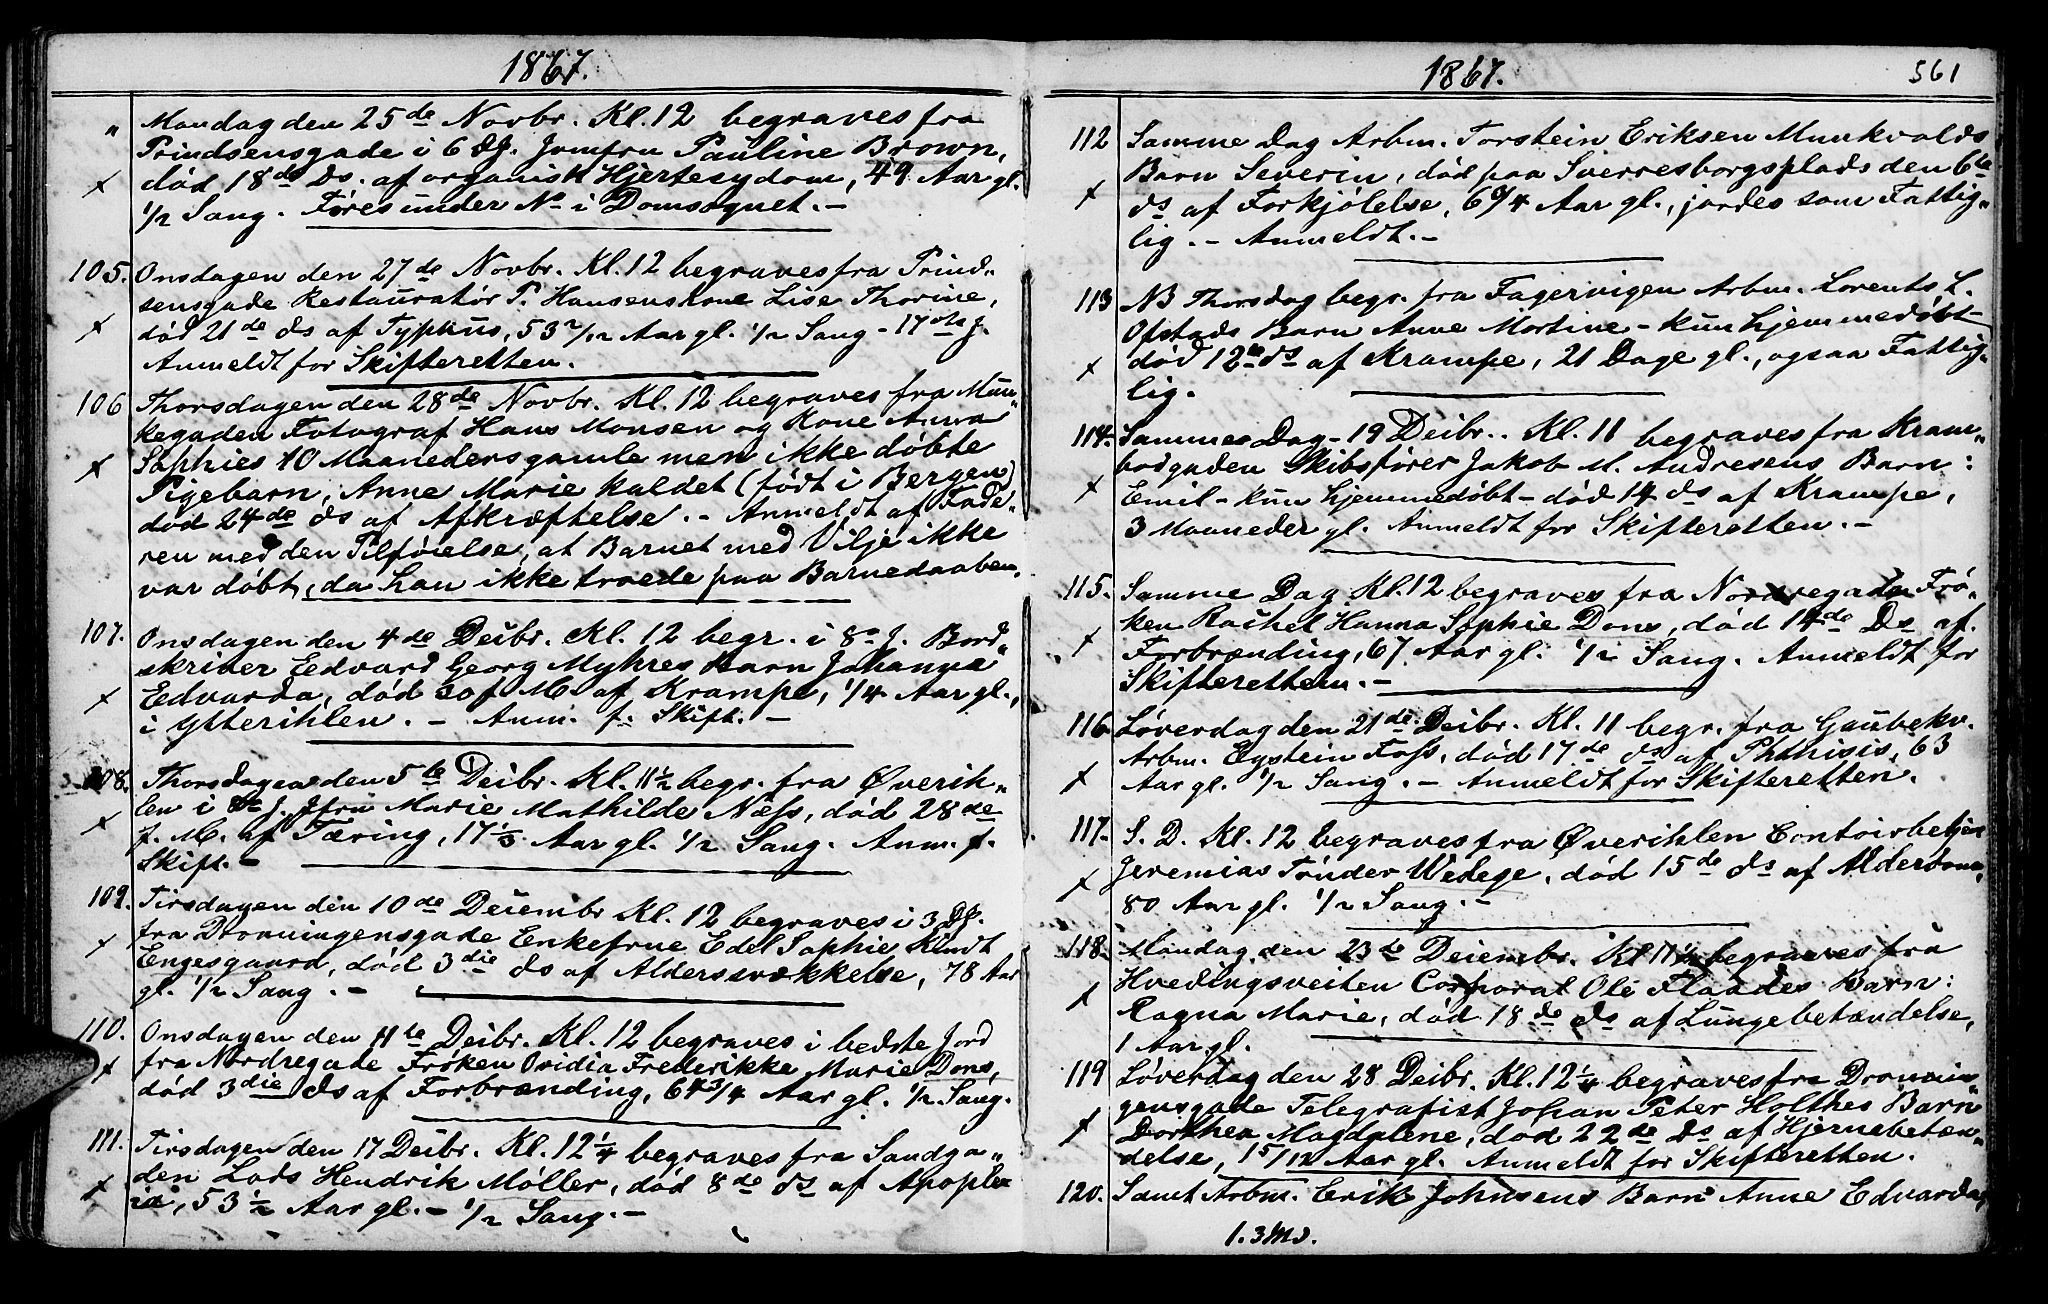 1867.
" Mandag den 25de Novbr. Kl. 12 begraves fra
Prindsensgade i 6 Dj. Jomfru Pauline Brown,
x død 18de Ds. af organisk Hjertesydom, 49 Aar gl.
1/2 Sang. Føres under No i Domsognet. -
105. Onsdagen den 27de Novbr. Kl. 12 begraves fra Prind„
sensgade Restauratør P. Hansens Kone Lise Thorine,
x død 21de ds af Typhus, 53 2/12 Aar gl. 1/2 Sang - 17 j.
Anmeldt for Skifteretten.
106 Thorsdagen den 28de Novbr. Kl. 12 begraves fra Mun„
kegaden Fotograf Hans Monsen og Kone Anna
x Sophies 10 Maaneders gamle men ikke døbte
Pigebarn, Anne Marie kaldet (født i Bergen)
død 24de ds af Afkræftelse. - Anmeldt af Fade„
ren med den Tilføielse, at Barnet med Vilje ikke
var døbt, da han ikke troede paa Barnedaaben.
107. Onsdagen den 4de Decbr. Kl. 12 begr. i 8. J. Bord„
skriver Eedvard Georg Myhres Barn Johanna
x Edvarda, død 30 f. M. af Krampe, 1/4 Aar gl.,
i Ytterihlen. - Anm. f. Skift. -
108. Thorsdagen den 5te Decbr. Kl. 11 1/2 begr. fra Øverih„
len i J. Jfru Marie Mathilde Næss, død 28de
x f. M. af Tæring, 17 1/3 Aar gl. 1/2 Sang. Anm. f.
Skift. -
109. Tirsdagen den 10de Decembr Kl. 12 begraves i 3 Dj.
x fra Dronningensgade Enkefrue Edel Sophie Kundt
Engesgaard, død 3die ds af Alderssvækkelse, 78 Aar
gl. 1/2 Sang. -
110. Onsdagen den 11te Decbr. Kl. 12 begraves i bedste Jord
x fra Nordregade Frøken Ovidia Frederikke Marie Dons,
død 3die ds af Forbrænding, 64 3/4 Aar gl. 1/2 Sang.
111. Tirsdagen den 17 Decbr. Kl. 12 1/4 begraves fra Sandga„
x den Lods Hendrik Møller, død 8de ds af Apople
xie, 53 1/2 Aar gl. - 1/2 Sang. -
1867. 561
112 Samme Dag Arbm. Torstein Eriksen Munkvolds
Barn Severin, død paa Sverresborgsplads den 6te
x ds af Forkjølelse, 6 3/4 Aar gl., jordes som Fattig„
lig. - Anmeldt. -
113 NB Thorsdag begr. fra Fagervigen Arbm. Lorents L.
Ofstads Barn Anne Mortine - kun hjemmedøbt -
x død 12te ds af Krampe, 21 Dage gl., ogsaa Fattig„
lig.
114. Samme Dag - 19 Decbr.. Kl. 11 begraves fra Kram„
bodgaden Skibsfører Jakob M. Andresens Barn:
x Emil - kun hjemmedøbt - død 14 ds af Krampe,
3 Maaneder gl. Anmeldt for Skifteretten. -
115. Samme Dag Kl. 12 begraves fra Nordregaden Frø„
x ken Rachel Hanna Sophie Dons, død 14de Ds af
Forbrænding, 67 Aar gl. 1/2 Sang. Anmeldt for
Skifteretten. -
116 Løverdag den 21de Decbr. Kl. 11 begr. fra Gaubekv.
Arbm. Eystein Foss, død 17de ds af Phthisis, 63
x Aar gl. 1/2 Sang. - Anmeldt for Skifteretten.
117. S. D. Kl. 12 begraves fra Øverihlen Contoirbetjen
x Jeremias Tønder Wedege, død 15de ds af Alderdom,
80 Aar gl. 1/2 Sang. -
118. Mandag den 23de Decembr. Kl 11 1/2 begraves fra
Hvedingsveiten Corporal Ole Flaades Barn:
x Ragna Marie, død 18de ds af Lungebetændelse,
1 Aar gl.
119 Løverdag den 28 Decbr. Kl. 12 1/4 begraves fra Dronnin„
gensgade Telegrafist Johan Peter Holthes Barn
x Dorthea Magdalene, død 22de Ds af Hjernebetæn„
delse, 1 5/12 Aar gl. Anmeldt for Skifteretten.
120. Samt Arbm. Erik Johnsens Barn Anne Edvarda,